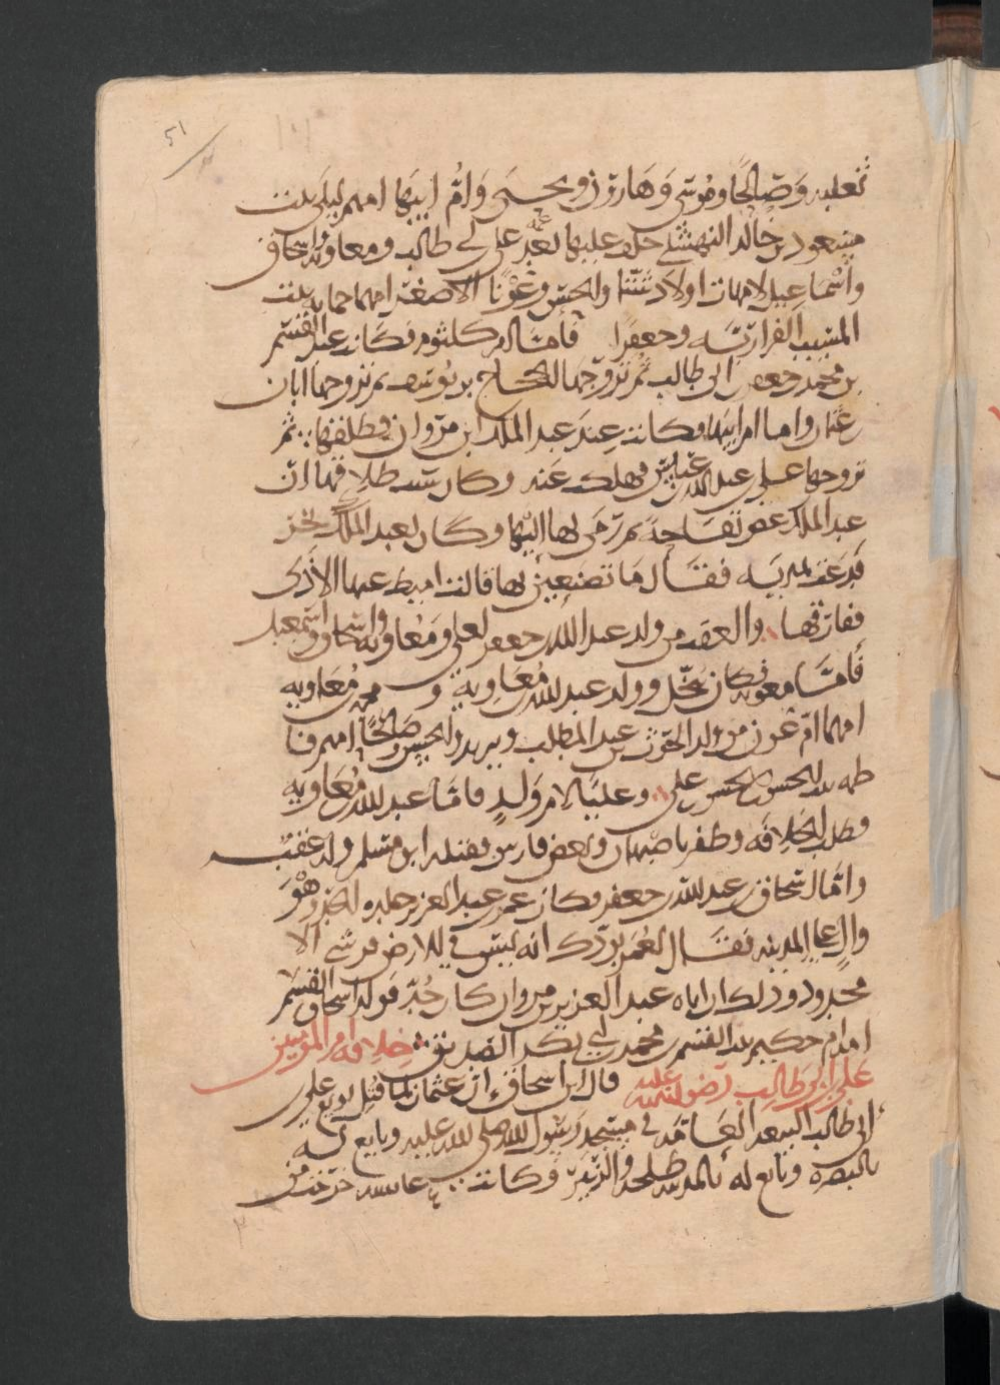 ٥١
ثعلبه وصالحا وموسى وهارون ويحيى وام ابيها امهم ليلى بنت
مسعود بن خالد النهشلي خلف عليها بعد عمه علي بن ابي طالب ومعاويه واسحاق
واسماعيل لامهات اولاد شتى والحسن وعونا الاصغر امهما جمانه بنت
المسيب الفزاريه وجعفرا فاما ام كلثوم فكانت عند القسم
بن محمد بن جعفر بن ابي طالب ثم تزوجها الحجاج بن يوسف ثم تزوجها ابان
بن عثمان واما ام ابيها فكانت عند عبد الملك ابن مروان فطلقها ثم
تزوجها علي بن عبد الله بن عباس فهلكت عنده وكان سبب طلاقها ان
عبد الملك عض تفاحة ثم رمى بها اليها وكان بعبد الملك بخر
فدعت بمديه فقال ما تصنعين بها قالت اميط عنها الاذى
ففارقها والعقب من ولد عبد الله بن جعفر لعلي ومعاويه واسحاق واسمعيل
فاما معويه فكان بخل وولد عبد الله بن معاوية و محمد بن معاويه
امهما ام عون من ولد الحرث بن عبد المطلب ويزيد والحسن وصالحا امهم فا
طمه بنت الحسن بن الحسن بن علي وعليا لام ولد فاما عبد الله بن معاويه
فطلب الخلافه وظفر باصبهان وبعض فارس فقتله ابو مسلم وله عقب
واما اسحاق بن عبد الله بن جعفر فكان عمر بن عبد العزيز جلده الحد وهو
والي على المدينه فقال لعمر بودك انه ليس في الارض قرشي الا
محدود وذلك ان اباه عبد العزيز بن مروان كان حد فولد اسحاق القسم
امه ام حكيم بنت القسم بن محمد بن ابي بكر الصديق خلافه امير المؤمنين
علي بن ابي طالب رضوان الله عليه قال ابن اسحاق ان عثمان لما قتل بويع علي بن
ابي طالب البيعه العامه في مسجد رسول الله صلى الله عليه وبايع له
بالبصره وبايع له بالمدينه طلحه والزبير وكانت عائشه خرجت من